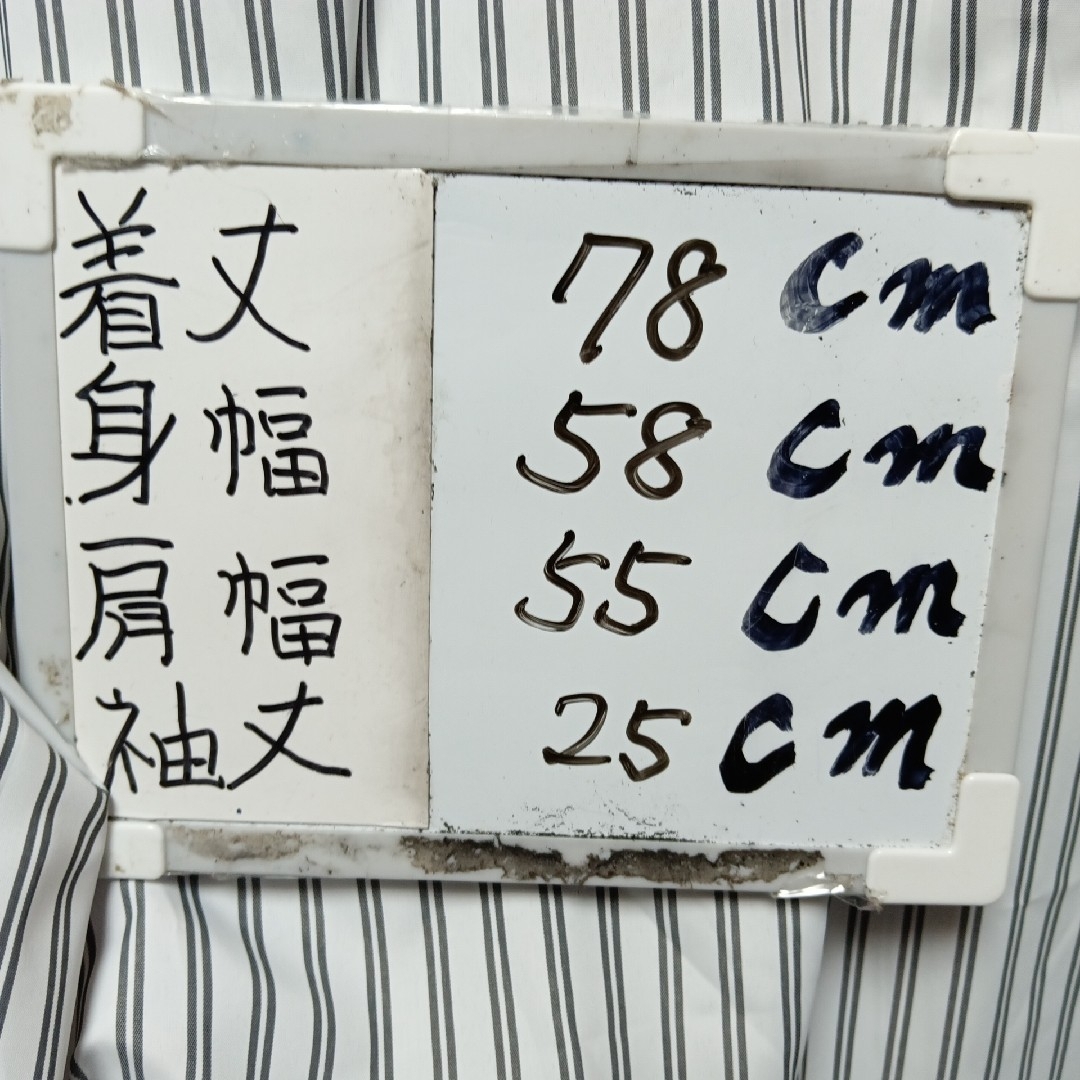 着丈 78 cm
身幅 58 cm
肩幅 55 cm
袖丈 25 cm